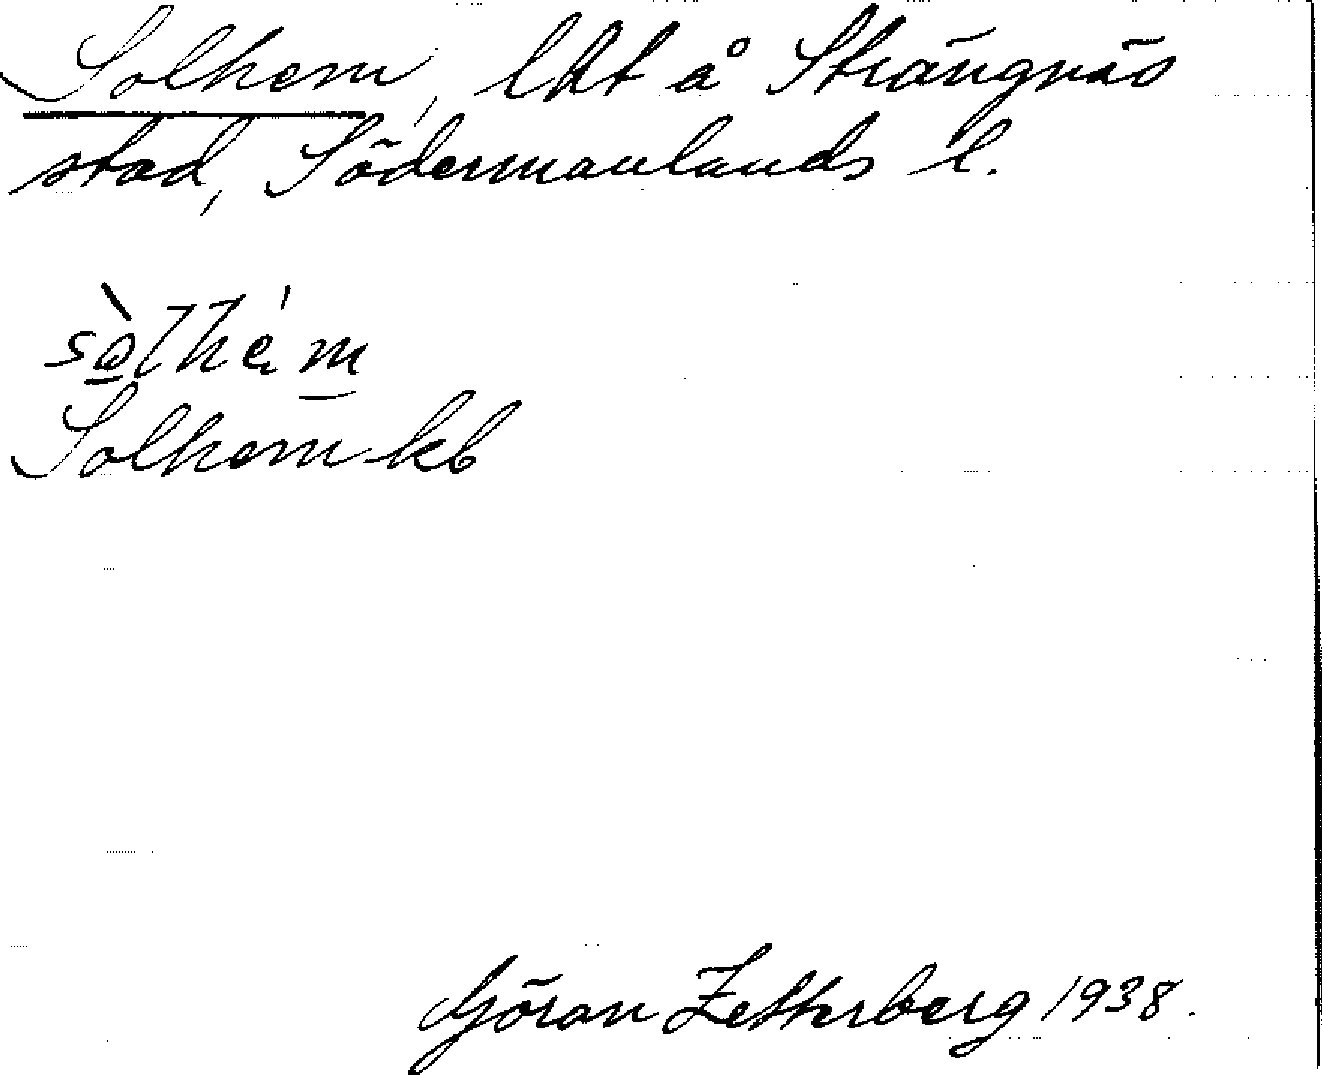 Solhem, lht å Strängnäs
stad, Södermanlands l.
sòlhé̩m
Solhem kb
Göran Zetterberg 1938.